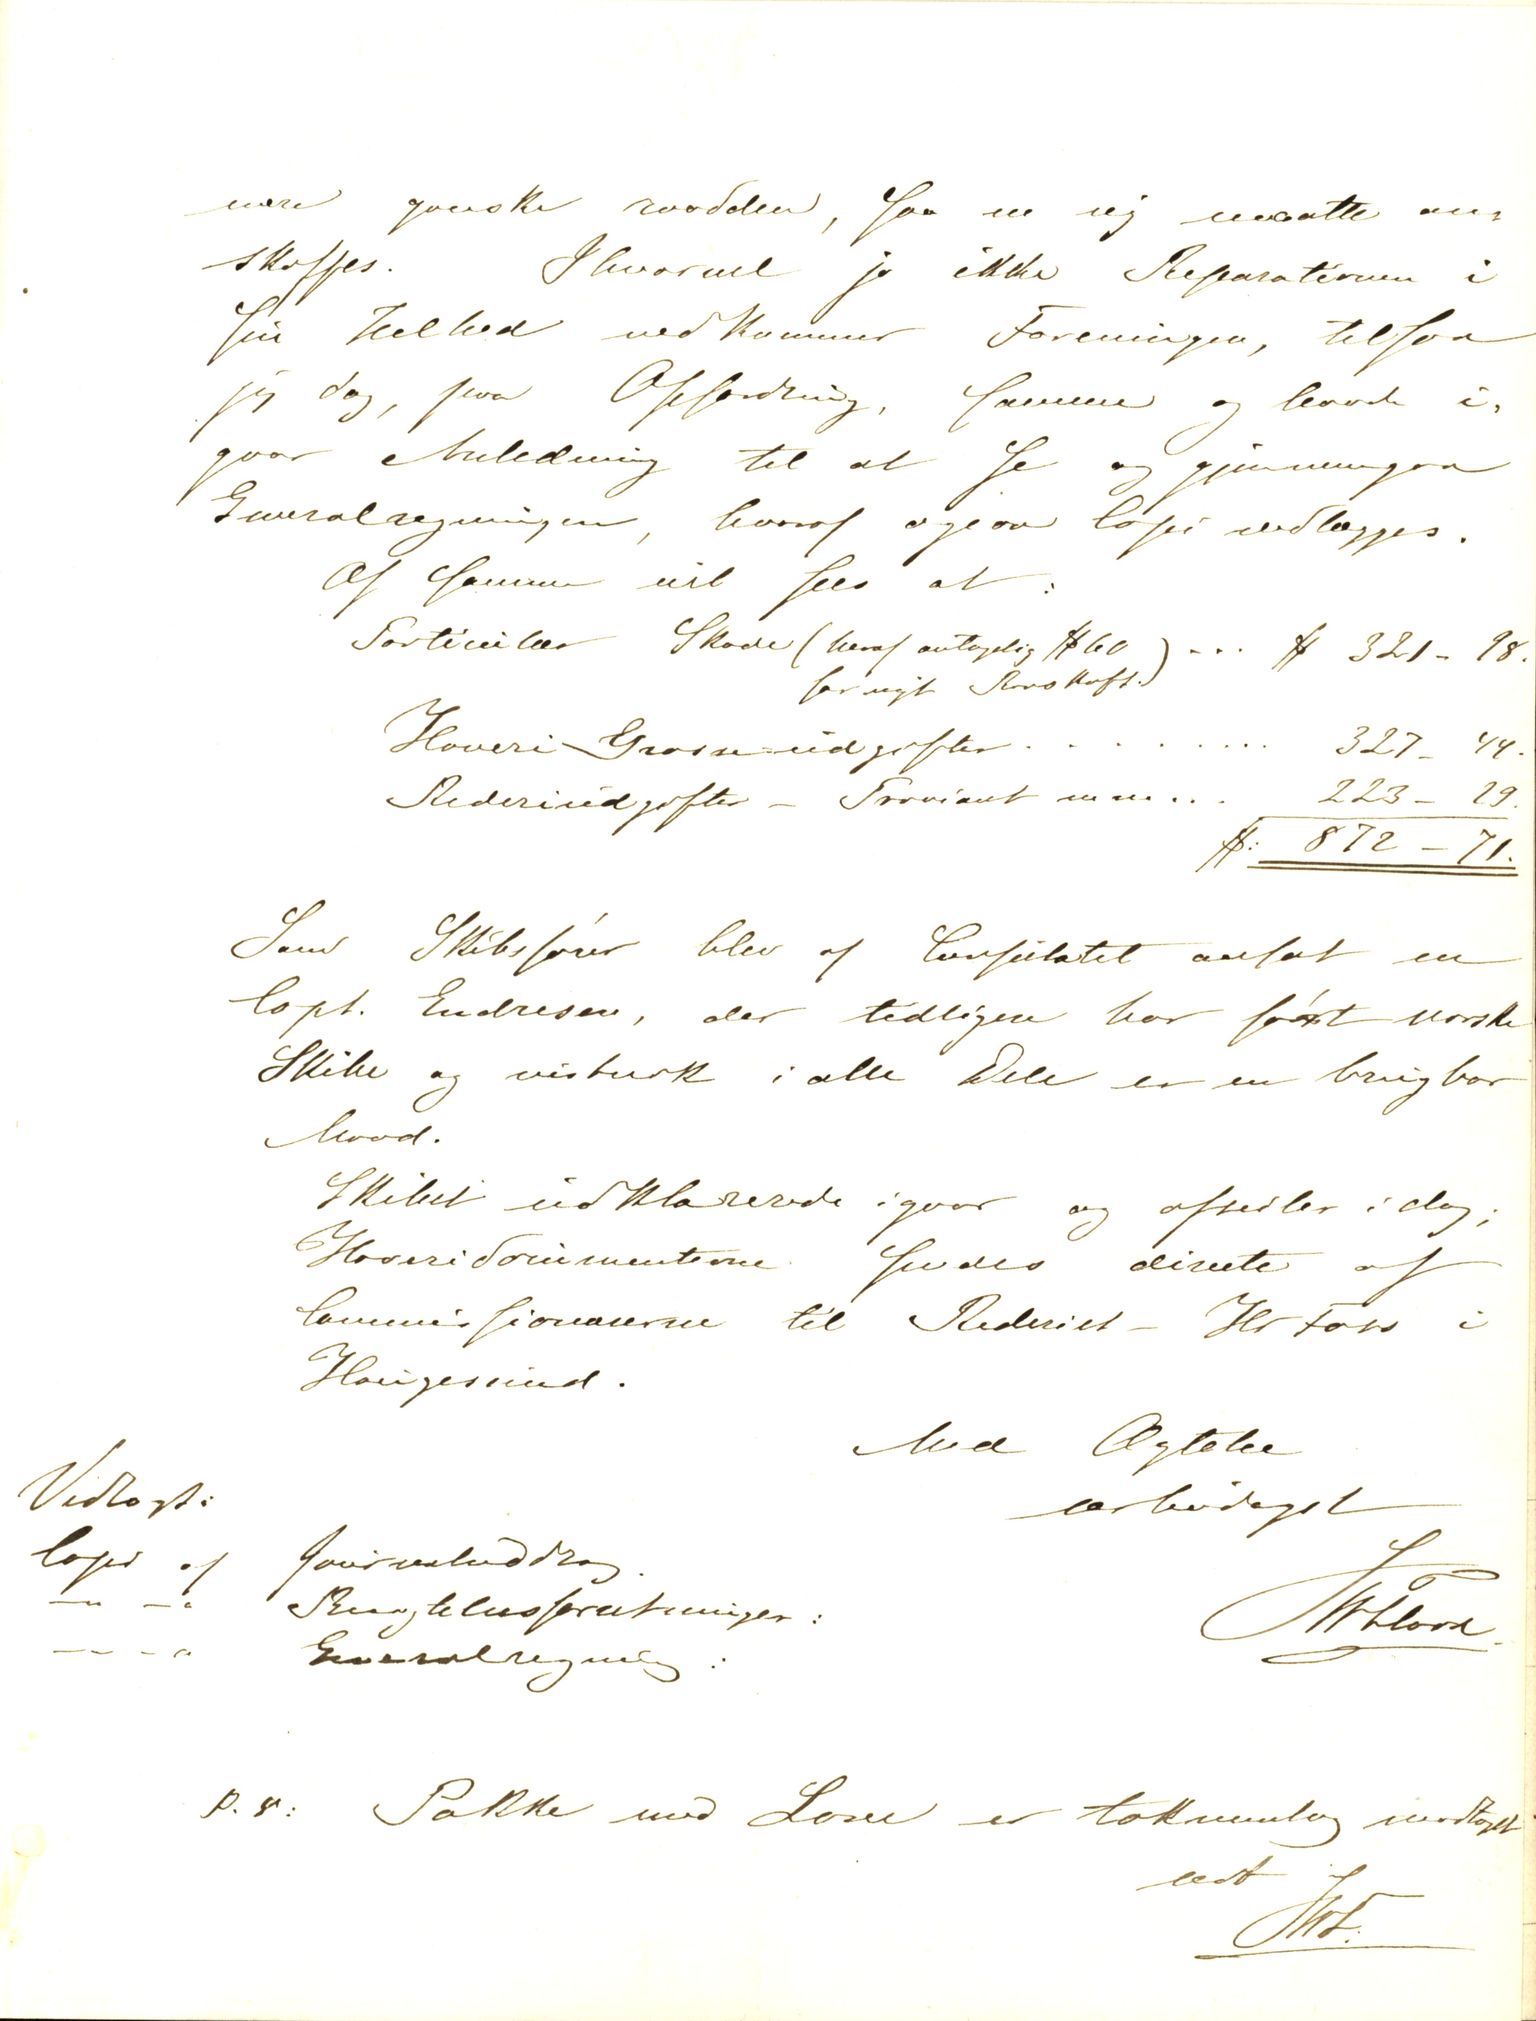 være ganske raadden, saa en ny maatte an-
skaffes. Ihvorvel jo ikke Reparationen i
sin Helhed vedkommer Foreningen, tilsaa
jeg dog, paa Opfordring, samme og havde i-
gaar Anledning til at se og gjennemgaa
Generalregningen, hvoraf ogsaa Copi vedlægges.
Af samme vil sees at:
Particulær Skade (heraf antagelig $ 60 ) ... $ 321 - 98.
for nyt Rorskaft.)
Haveri Grosse udgifter .......... 327 - 44.
Rederiudgifter - Proviant m m ... 223 - 29.
$: 872 - 71.
Som Skibsfører blev af Consulatet ansat en
Capt. Endresen, der tidligere har ført norske
Skibe og vistnok i alle Dele er en brugbar
Mand.
Skibet udklarerede igaar og afseiler idag;
Haveridocumenterne sendes directe af
Commissionærerne til Rederiet - Hr Foss i
Haugesund.
Med Agtelse
ærbødigst
Vedlagt:
Copi af Journaluddrag
— " — " Besigtelsesforretninger:
— " — " Generalregning:
P. S: Pakke med Love er taknemlig modtaget